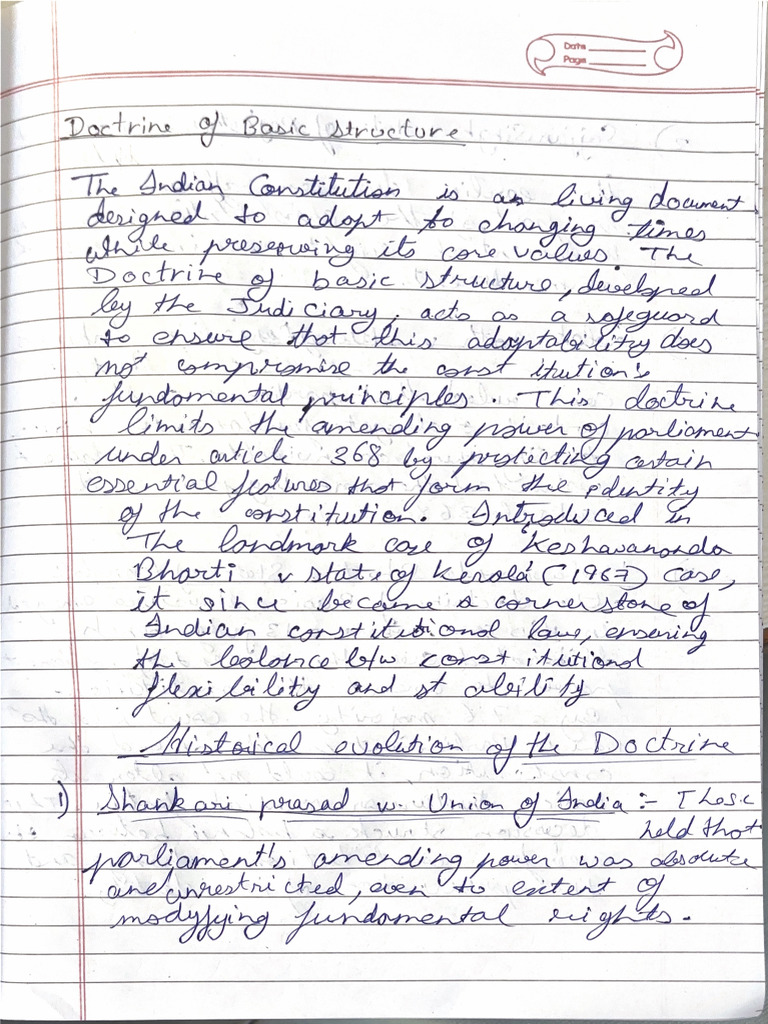 Date
Page
Doctrine of Basic structure
The Indian Constitution is as living document
designed to adopt to changing times
while preserving its core values. The
Doctrine of basic structure, developed
by the Judiciary, acts as a safeguard
to ensure that this adaptability does
not compromise the const itution's
fundamental principles. This doctrine
limits the amending power of parliament
under article 368 by protecting certain
essential features that form the identity
of the constitution. Introduced in
The landmark case of 'Keshavananda
Bharti v state of Kerala' (1967) case,
it since became a cornerstone of
Indian constitutional law, ensuring
the balance b/w const itutional
flexibility and st ability
Historical evolution of the Doctrine
1) Shankari prasad v. Union of India :- The sc
held that
parliament's amending power was absolute
and unrestricted, even to extent of
modyfying fundamental rights.